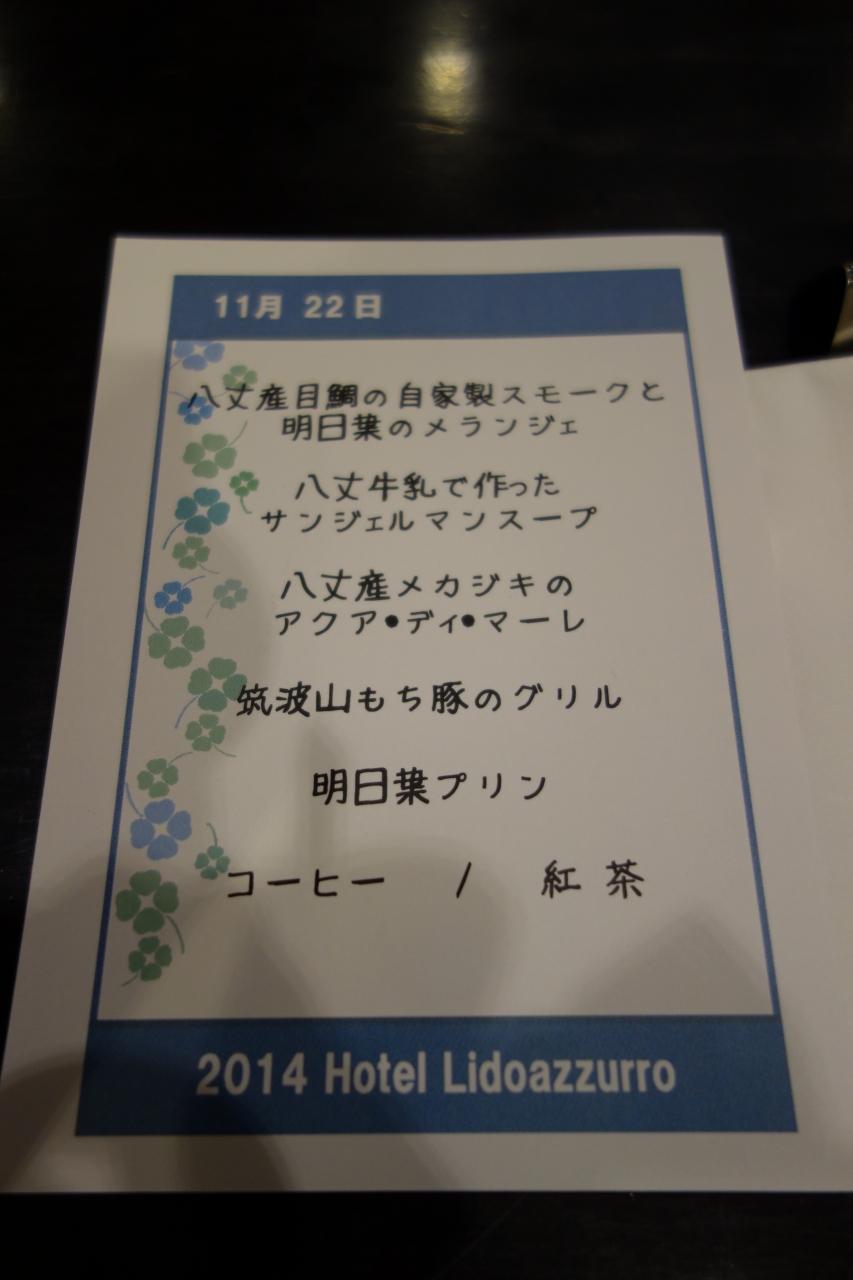 11月 22日
八丈産目鯛の自家製スモークと
明日葉のメランジェ
八丈牛乳で作った
サンジェルマンスープ
八丈産メカジキの
アクア•ディ•マーレ
筑波山もち豚のグリル
明日葉プリン
コーヒー / 紅茶
2014 Hotel Lidoazzurro